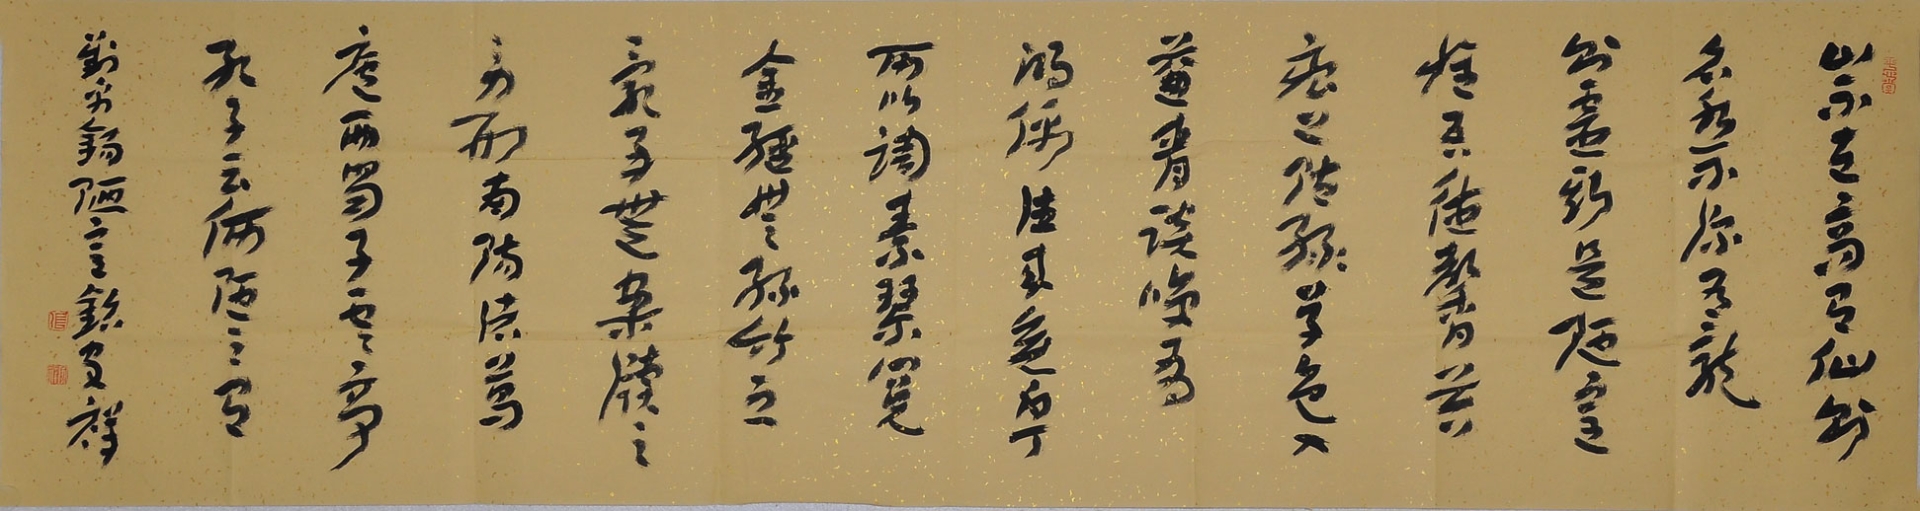 山不在高有仙則
名水不深有龍
則靈斯是陋室
惟吾德馨苔
痕上階綠草色入
簾青談笑有
鴻儒往來無白丁
可以調素琴閱
金經無絲竹之
亂耳無案牘之
勞形南陽諸葛
廬西蜀子雲亭
孔子云何陋之有
劉禹錫陋室銘 祥